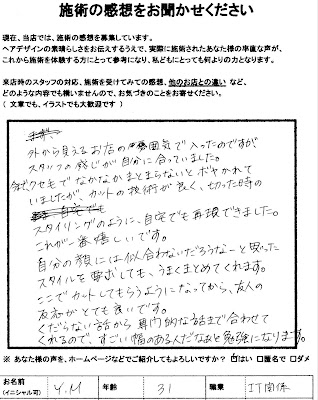 施術の感想をお聞かせください
現在、当店では、施術の感想を募集しています。
ヘアデザインの素晴らしさをお伝えするうえで、実際に施術されたあなた様の率直な声が、
これから施術を体験する方にとって参考になり、私どもにとって何よりの力となります。
来店時のスタッフの対応、施術を受けてみての感想、他のお店との違い など、
どのような内容でも構いませんので、お気づきのことをお寄せください。
（ 文章でも、イラストでも大歓迎です ）
外から見えるお店の雰囲気で入ったのですが
スタッフの感じが自分に合っていました。
クセ毛でなかなかまとまらないとボヤかれて
いましたが、カットの技術が良く、切った時の
スタイリングのように、自宅でも再現できました。
これが一番嬉しいです。
自分の顔には似合わないだろうなーと思った
スタイルを要求しても、うまくまとめてくれます。
ここでカットしてもらうようになってから、友人の
反応がとても良いです。
くだらない話から専門的な話まで合わせて
くれるので、すごい幅のある人だなぁと勉強になります。
※ あなた様の声を、ホームページなどでご紹介してもよろしいですか？ はい □匿名で □ダメ
お名前
（イニシャル可） Y.M 年齢 31 職業 IT関係